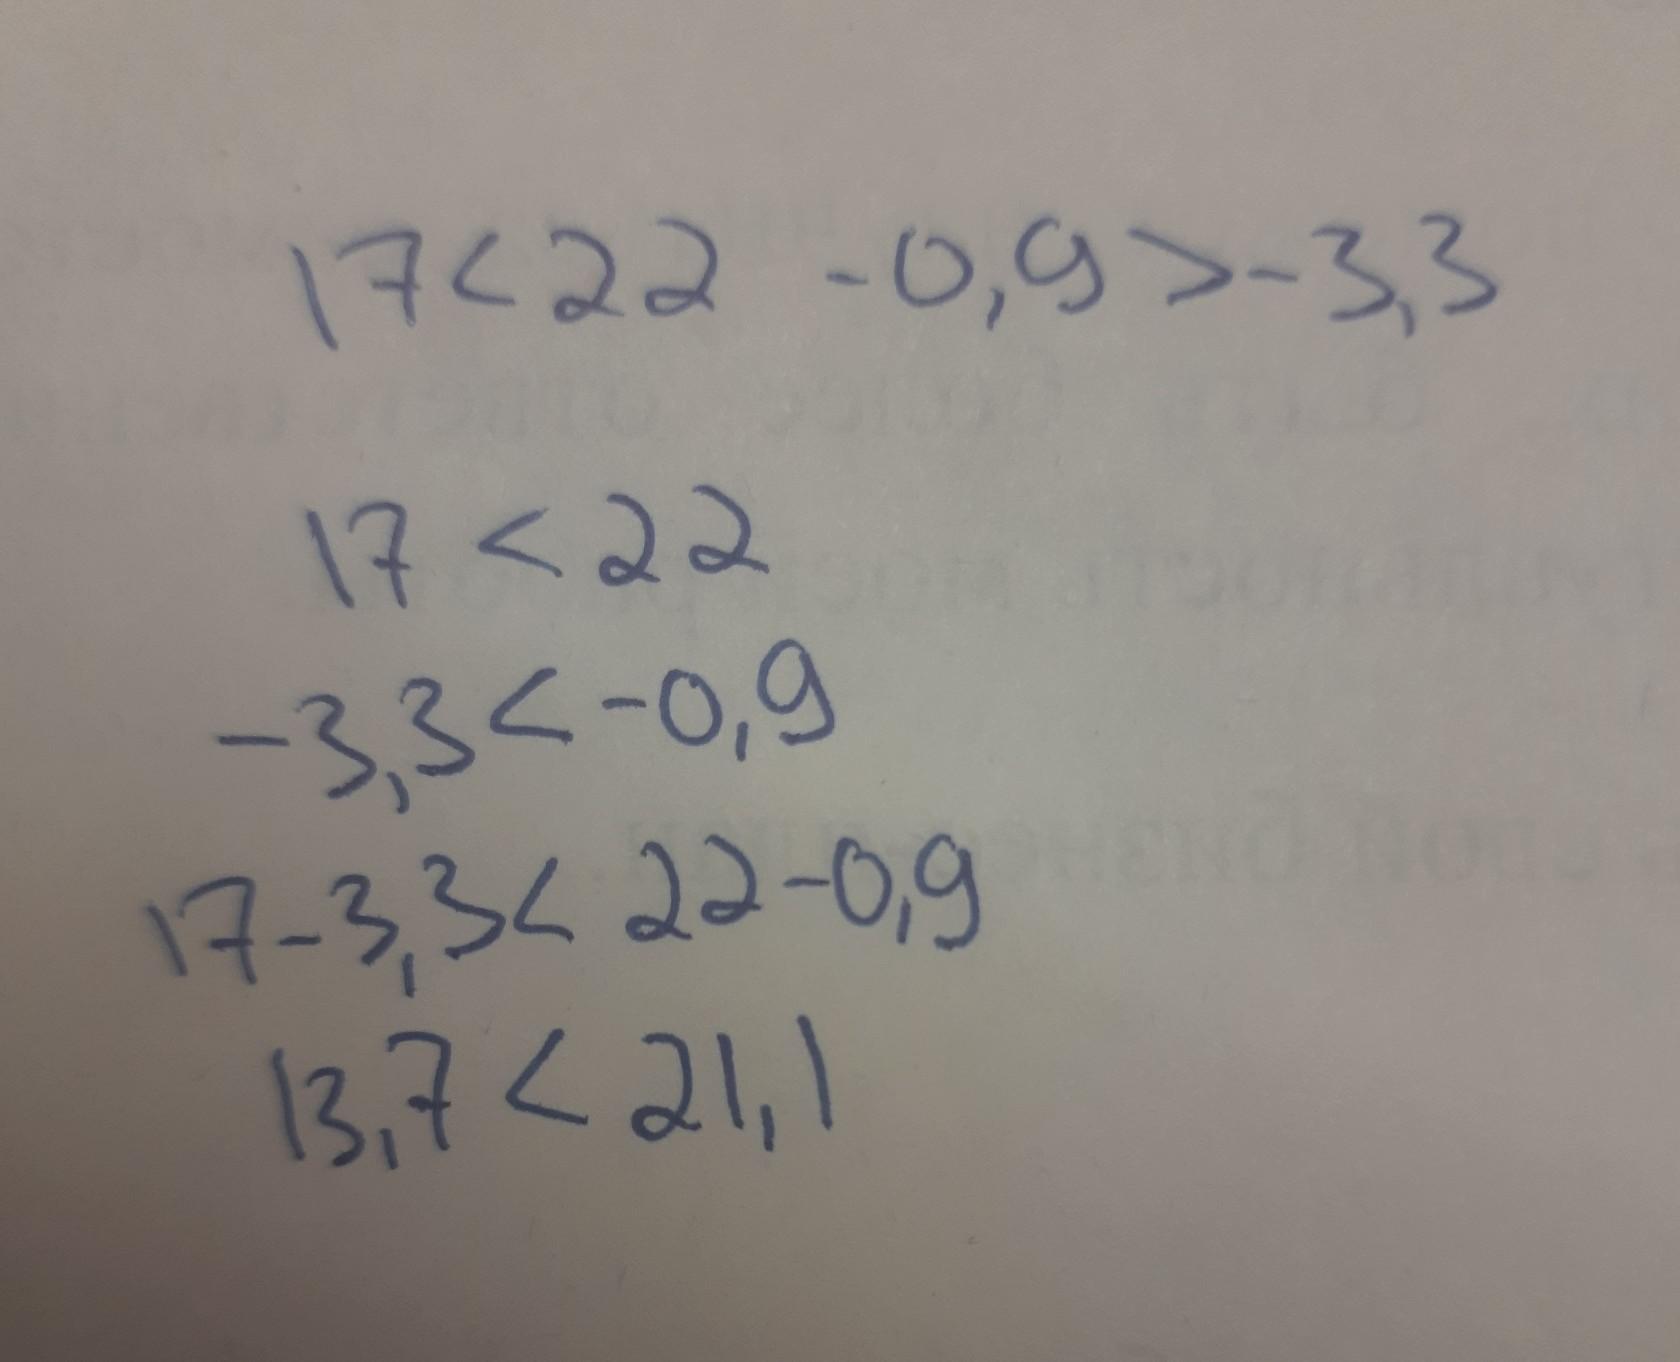 17<22 -0,9>-3,3
17<22
-3,3<-0,9
17-3,3<22-0,9
13,7<21,1